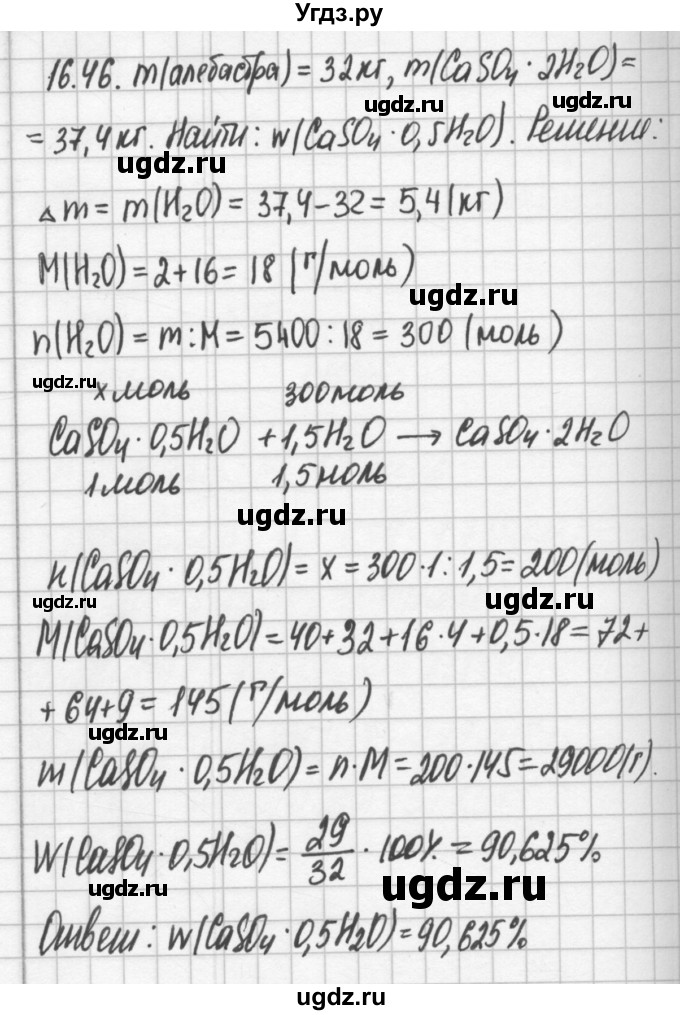 Угдз.ру
16.46. m(алебастра) = 32кг, m(CaSO₄ · 2H₂O) =
= 37,4 кг. Найти: w(CaSO₄ · 0,5H₂O). Решение:
ugdz.ru
ugdz.ru
ugdz.ru
Δm = m(H₂O) = 37,4 – 32 = 5,4 (кг)
M(H₂O) = 2 + 16 = 18 (г/моль)
ugdz.ru
n(H₂O) = m : M = 5400 : 18 = 300 (моль)
ugdz.ru
x моль 300 моль
CaSO₄ · 0,5H₂O + 1,5H₂O → CaSO₄ · 2H₂O
1 моль 1,5 моль
ugdz.ru
n(CaSO₄ · 0,5H₂O) = x = 300 · 1 : 1,5 = 200 (моль)
ugdz.ru
ugdz.ru
M(CaSO₄ · 0,5H₂O) = 40 + 32 + 16 · 4 + 0,5 · 18 = 72 +
+ 64 + 9 = 145 (г/моль)
ugdz.ru
m(CaSO₄ · 0,5H₂O) = n · M = 200 · 145 = 29000 (г).
ugdz.ru
ugdz.ru
W(CaSO₄ · 0,5H₂O) = 29/32 · 100% = 90,625%
ugdz.ru
ugdz.ru
Ответ: w(CaSO₄ · 0,5H₂O) = 90,625%
ugdz.ru